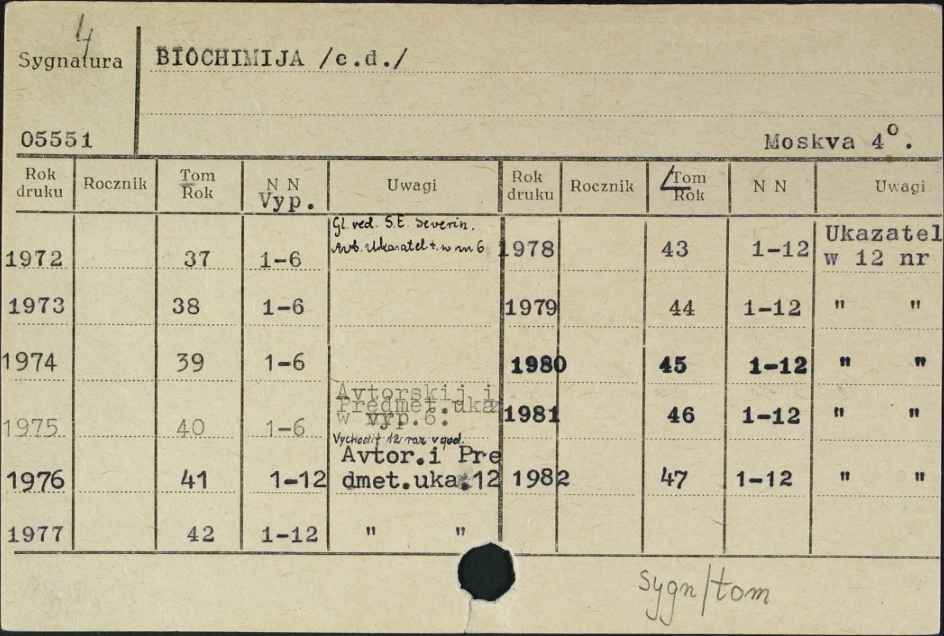 4
Sygnatura
BIOCHIMIJA /c.d./
05551
Moskva 4°.
Rok druku Rocznik Tom Rok N N Vyp. Uwagi Rok druku Rocznik Tom Rok N N Uwagi
Gl. red. S.E. Severin.
1972 37 1-6 Avt. Ukazatel t. w nr 6. 1978 43 1-12 Ukazatel w 12 nr
1973 38 1-6 1979 44 1-12 " "
1974 39 1-6 1980 45 1-12 " "
Avtorskij i
Predmet.uka
1975 40 1-6 w vyp.6. 1981 46 1-12 " "
Vychodit 12 raz v god.
Avtor.i Pre
1976 41 1-12 dmet.uka.12 1982 47 1-12 " "
1977 42 1-12 " "
sygn/tom